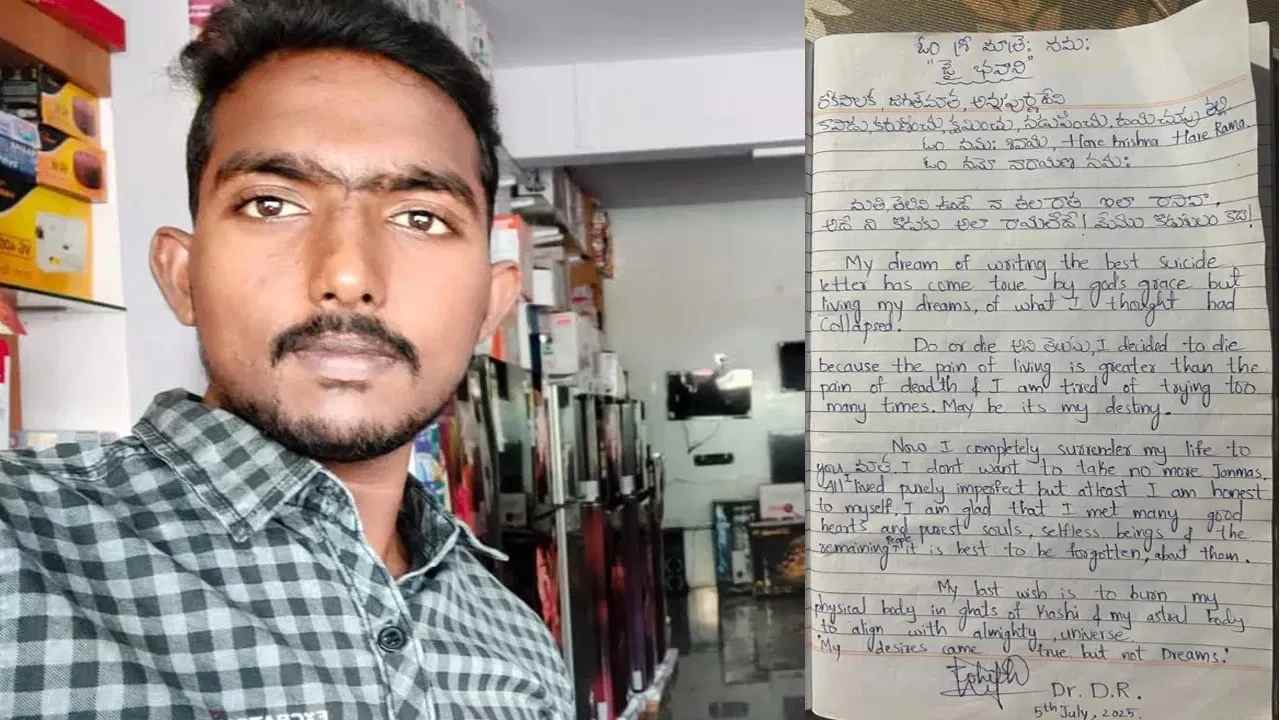 ఓం శ్రీ మాత్రే నమః
"జై భవాని"
జగత్‌మాత, అన్నపూర్ణ దేవి
కాపాడు, కరుణించు, క్షమించు,
ఓం నమః శివాయ, Hare Krishna Hare Rama.
ఓం నమో నారాయణ నమః
My dream of writing the best suicide
letter has come true by gods grace but
living my dreams, of what I thought had
collapsed.
Do or die అని తెలుసు, I decided to die
because the pain of living is greater than the
pain of deadth & I am tired of trying too
many times. May be its my destiny.
Now I completely surrender my life to
you మాత. I dont want to take no more Janmas.
All I lived purely imperfect but atleast I am honest
to myself. I am glad that I met many good
hearts and purest souls, selfless beings & the
remaining people it is best to be forgotten, about them.
My last wish is to burn my
physical body in ghats of Kashi & my astral body
to align with almighty universe
"My desires came true but not Dreams."
Dr. D.R.
5th July, 2025.